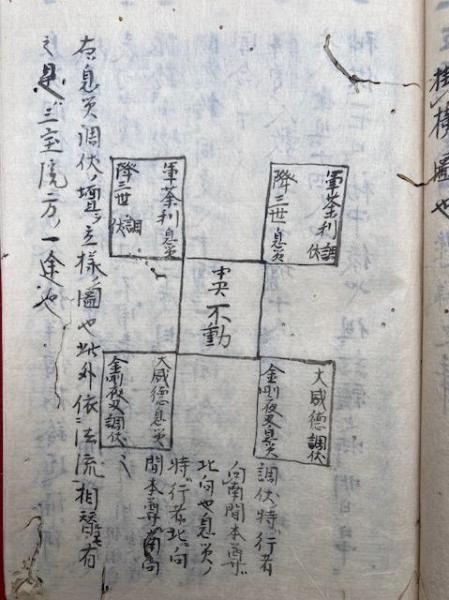 軍荼利調伏
降三世息災
軍荼利息災
降三世調伏
中央不動
大威徳調伏
金剛夜叉息災
大威徳息災
金剛夜叉調伏
調伏時行者
向南間本尊
北向也息災ノ
時行者北向
間本尊南向
右息災調伏ノ壇ヲ立様圖也此外依法流相替有
之是三宝院方ノ一途也